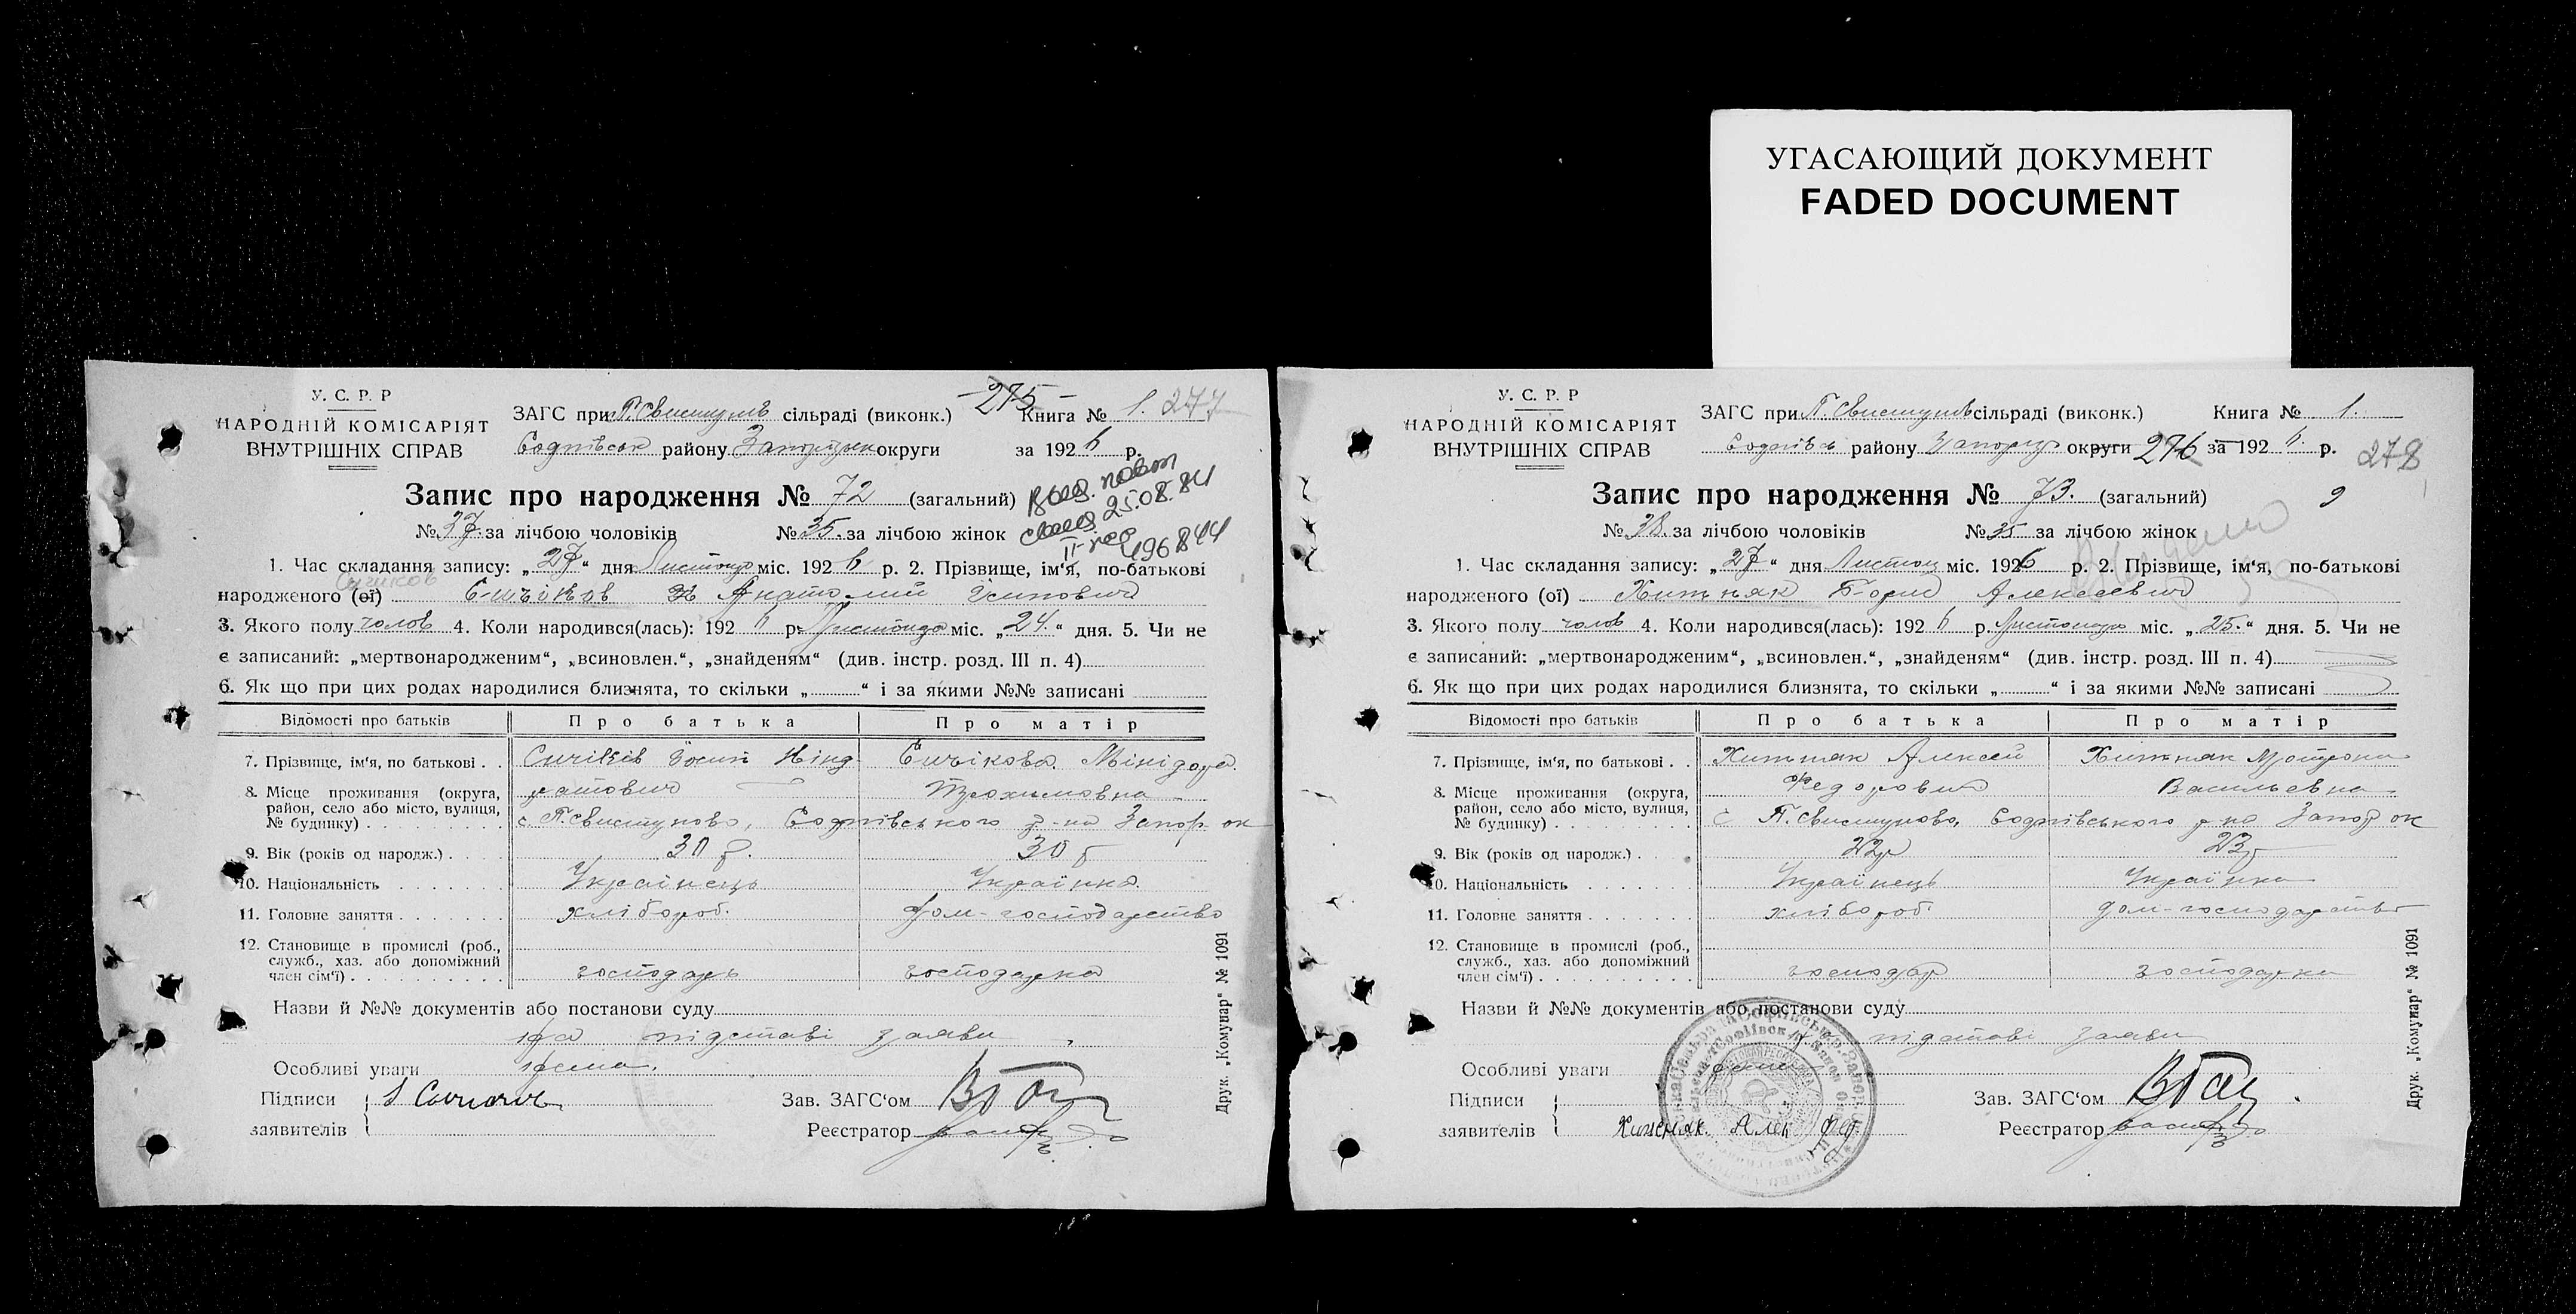 УГАСАЮЩИЙ ДОКУМЕНТ
FADED DOCUMENT
У. С. Р. Р
НАРОДНІЙ КОМІСАРІЯТ
ВНУТРІШНІХ СПРАВ
ЗАГС при П. Свистунів сільраді (виконк.)
-275- Книга № 1. 277
району округи за 1926 р.
Запис про народження № 72 (загальний)
Выд. повт
свид 25.08.84
№ 37. за лічбою чоловіків № 35. за лічбою жінок
496844
1. Час складання запису: „27“ дня Листопад міс. 1926 р. 2. Прізвище, ім'я, по-батькові
народженого (ої) Анатолий
3. Якого полу чолов 4. Коли народився(лась): 1926 р. Листопада міс. „24.“ дня. 5. Чи не
є записаний: „мертвонародженим“, „всиновлен.“, „знайденям“ (див. інстр. розд. III п. 4)
6. Як що при цих родах народилися близнята, то скільки „ “ і за якими №№ записані
Відомості про батьків Про батька Про матір
7. Прізвище, ім'я, по батькові . .
8. Місце проживання (округа, район, село або місто, вулиця, № будинку) . . . . . . . . .
Трохимовна
с. П. Свистуново, р-на Запор. ок
9. Вік (років од народж.) . . . . 30 р. 30 р
10. Національність . . . . . . . Українець Українка
11. Головне заняття . . . . . . . хлібороб. дом-господарство
12. Становище в промислі (роб., служб., хаз. або допоміжний член сім'ї) . . . . . . . . . . господарь господарка
Назви й №№ документів або постанови суду
на підставі заяви
Особливі уваги нема.
Підписи
заявителів
Зав. ЗАГС'ом
Реєстратор
Друк. „Комунар“ № 1091
У. С. Р. Р
НАРОДНІЙ КОМІСАРІЯТ
ВНУТРІШНІХ СПРАВ
ЗАГС при П. Свистунів сільраді (виконк.) Книга № 1.
району округи 276 за 1926 р. 278
Запис про народження № 73. (загальний)
№ 38. за лічбою чоловіків № 35 за лічбою жінок
1. Час складання запису: „27“ дня Листоп міс. 1926 р. 2. Прізвище, ім'я, по-батькові
народженого (ої) Хижняк Борис Алексеевич
3. Якого полу чолов 4. Коли народився(лась): 1926 р. Листопада міс. „25.“ дня. 5. Чи не
є записаний: „мертвонародженим“, „всиновлен.“, „знайденям“ (див. інстр. розд. III п. 4)
6. Як що при цих родах народилися близнята, то скільки „ “ і за якими №№ записані
Відомості про батьків Про батька Про матір
7. Прізвище, ім'я, по батькові . . Хижняк Алексей Хижняк Мотрона
Федорович Васильевна
8. Місце проживання (округа, район, село або місто, вулиця, № будинку) . . . . . . . . .
с П. Свистуново, р-на Запор ок
9. Вік (років од народж.) . . . . 22р 23р
10. Національність . . . . . . . Українець Українка
11. Головне заняття . . . . . . . хлібороб. дом-господарство
12. Становище в промислі (роб., служб., хаз. або допоміжний член сім'ї) . . . . . . . . . . господар господарка
Назви й №№ документів або постанови суду
на підставі заяви
Особливі уваги
Підписи
заявителів Хижняк. Алек Фед.
Зав. ЗАГС'ом
Реєстратор
Друк. „Комунар“ № 1091